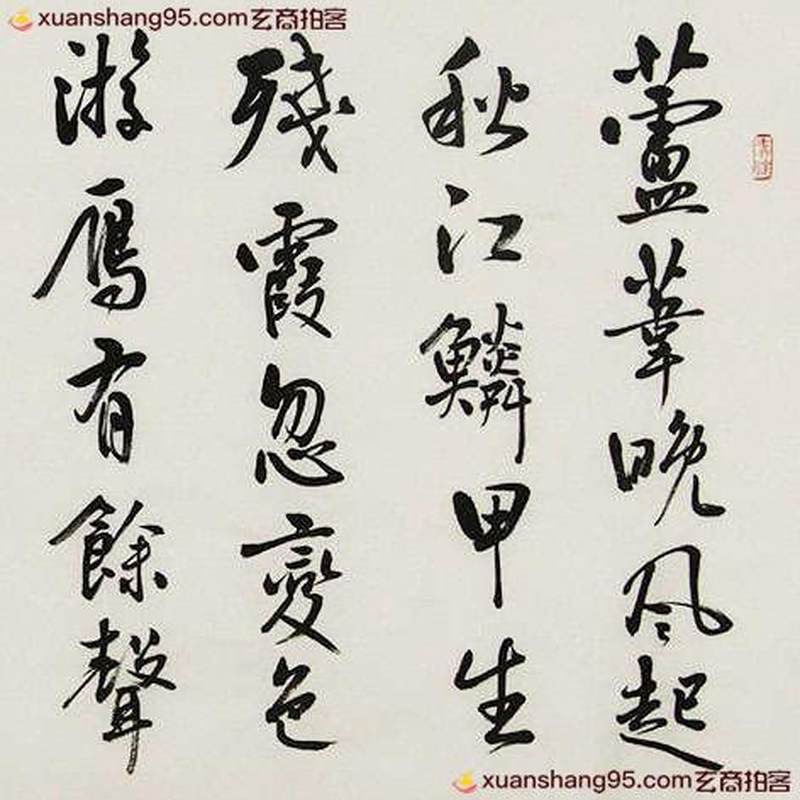 xuanshang95.com玄商拍客
蘆葦晚风起
秋江鱗甲生
殘霞忽變色
游雁有餘聲
xuanshang95.com玄商拍客